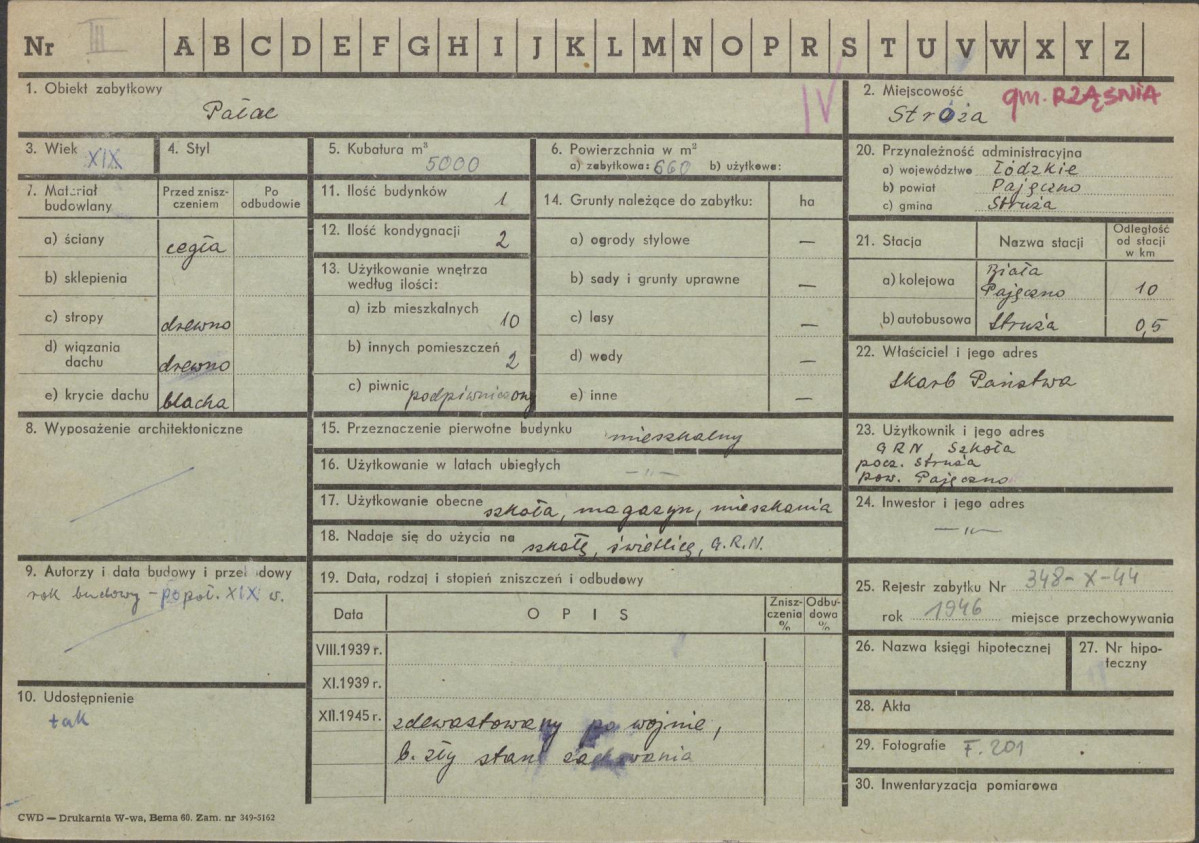 Nr III A B C D E F G H I J K L M N O P R S T U V W X Y Z
1. Obiekt zabytkowy
Pałac
IV
2. Miejscowość
gm. RZĄŚNIA
Stróża
3. Wiek
XIX
4. Styl
5. Kubatura m³
5000
6. Powierzchnia w m²
a) zabytkowa: 660 b) użytkowa:
7. Materiał budowlany
Przed znisz-
czeniem
Po
odbudowie
a) ściany cegła
b) sklepienia
c) stropy drewno
d) wiązania
dachu drewno
e) krycie dachu blacha
8. Wyposażenie architektoniczne
9. Autorzy i data budowy i przebudowy
rok budowy - po poł. XIX w.
10. Udostępnienie
tak
11. Ilość budynków 1
12. Ilość kondygnacji 2
13. Użytkowanie wnętrza
według ilości:
a) izb mieszkalnych 10
b) innych pomieszczeń 2
c) piwnic podpiwniczony
14. Grunty należące do zabytku: ha
a) ogrody stylowe —
b) sady i grunty uprawne —
c) lasy —
d) wody —
e) inne —
15. Przeznaczenie pierwotne budynku mieszkalny
16. Użytkowanie w latach ubiegłych -„-
17. Użytkowanie obecne szkoła, magazyn, mieszkania
18. Nadaje się do użycia na szkołę, świetlicę, G.R.N.
19. Data, rodzaj i stopień zniszczeń i odbudowy
Data O P I S
Znisz-
czenia
%
Odbu-
dowa
%
VIII.1939 r.
XI.1939 r.
XII.1945 r. zdewastowany po wojnie,
b. zły stan zachowania
20. Przynależność administracyjna
a) województwo Łódzkie
b) powiat Pajęczno
c) gmina Struża
21. Stacja Nazwa stacji
Odległość
od stacji
w km
a) kolejowa Biała
Pajęczno 10
b) autobusowa Struża 0,5
22. Właściciel i jego adres
Skarb Państwa
23. Użytkownik i jego adres
GRN Szkoła
pocz. Struża
pow. Pajęczno
24. Inwestor i jego adres
—„—
25. Rejestr zabytku Nr 348-X-44
rok 1946 miejsce przechowywania
26. Nazwa księgi hipotecznej
27. Nr hipo-
teczny
28. Akta
29. Fotografie F. 201
30. Inwentaryzacja pomiarowa
CWD — Drukarnia W-wa, Bema 60. Zam. nr 349-5162